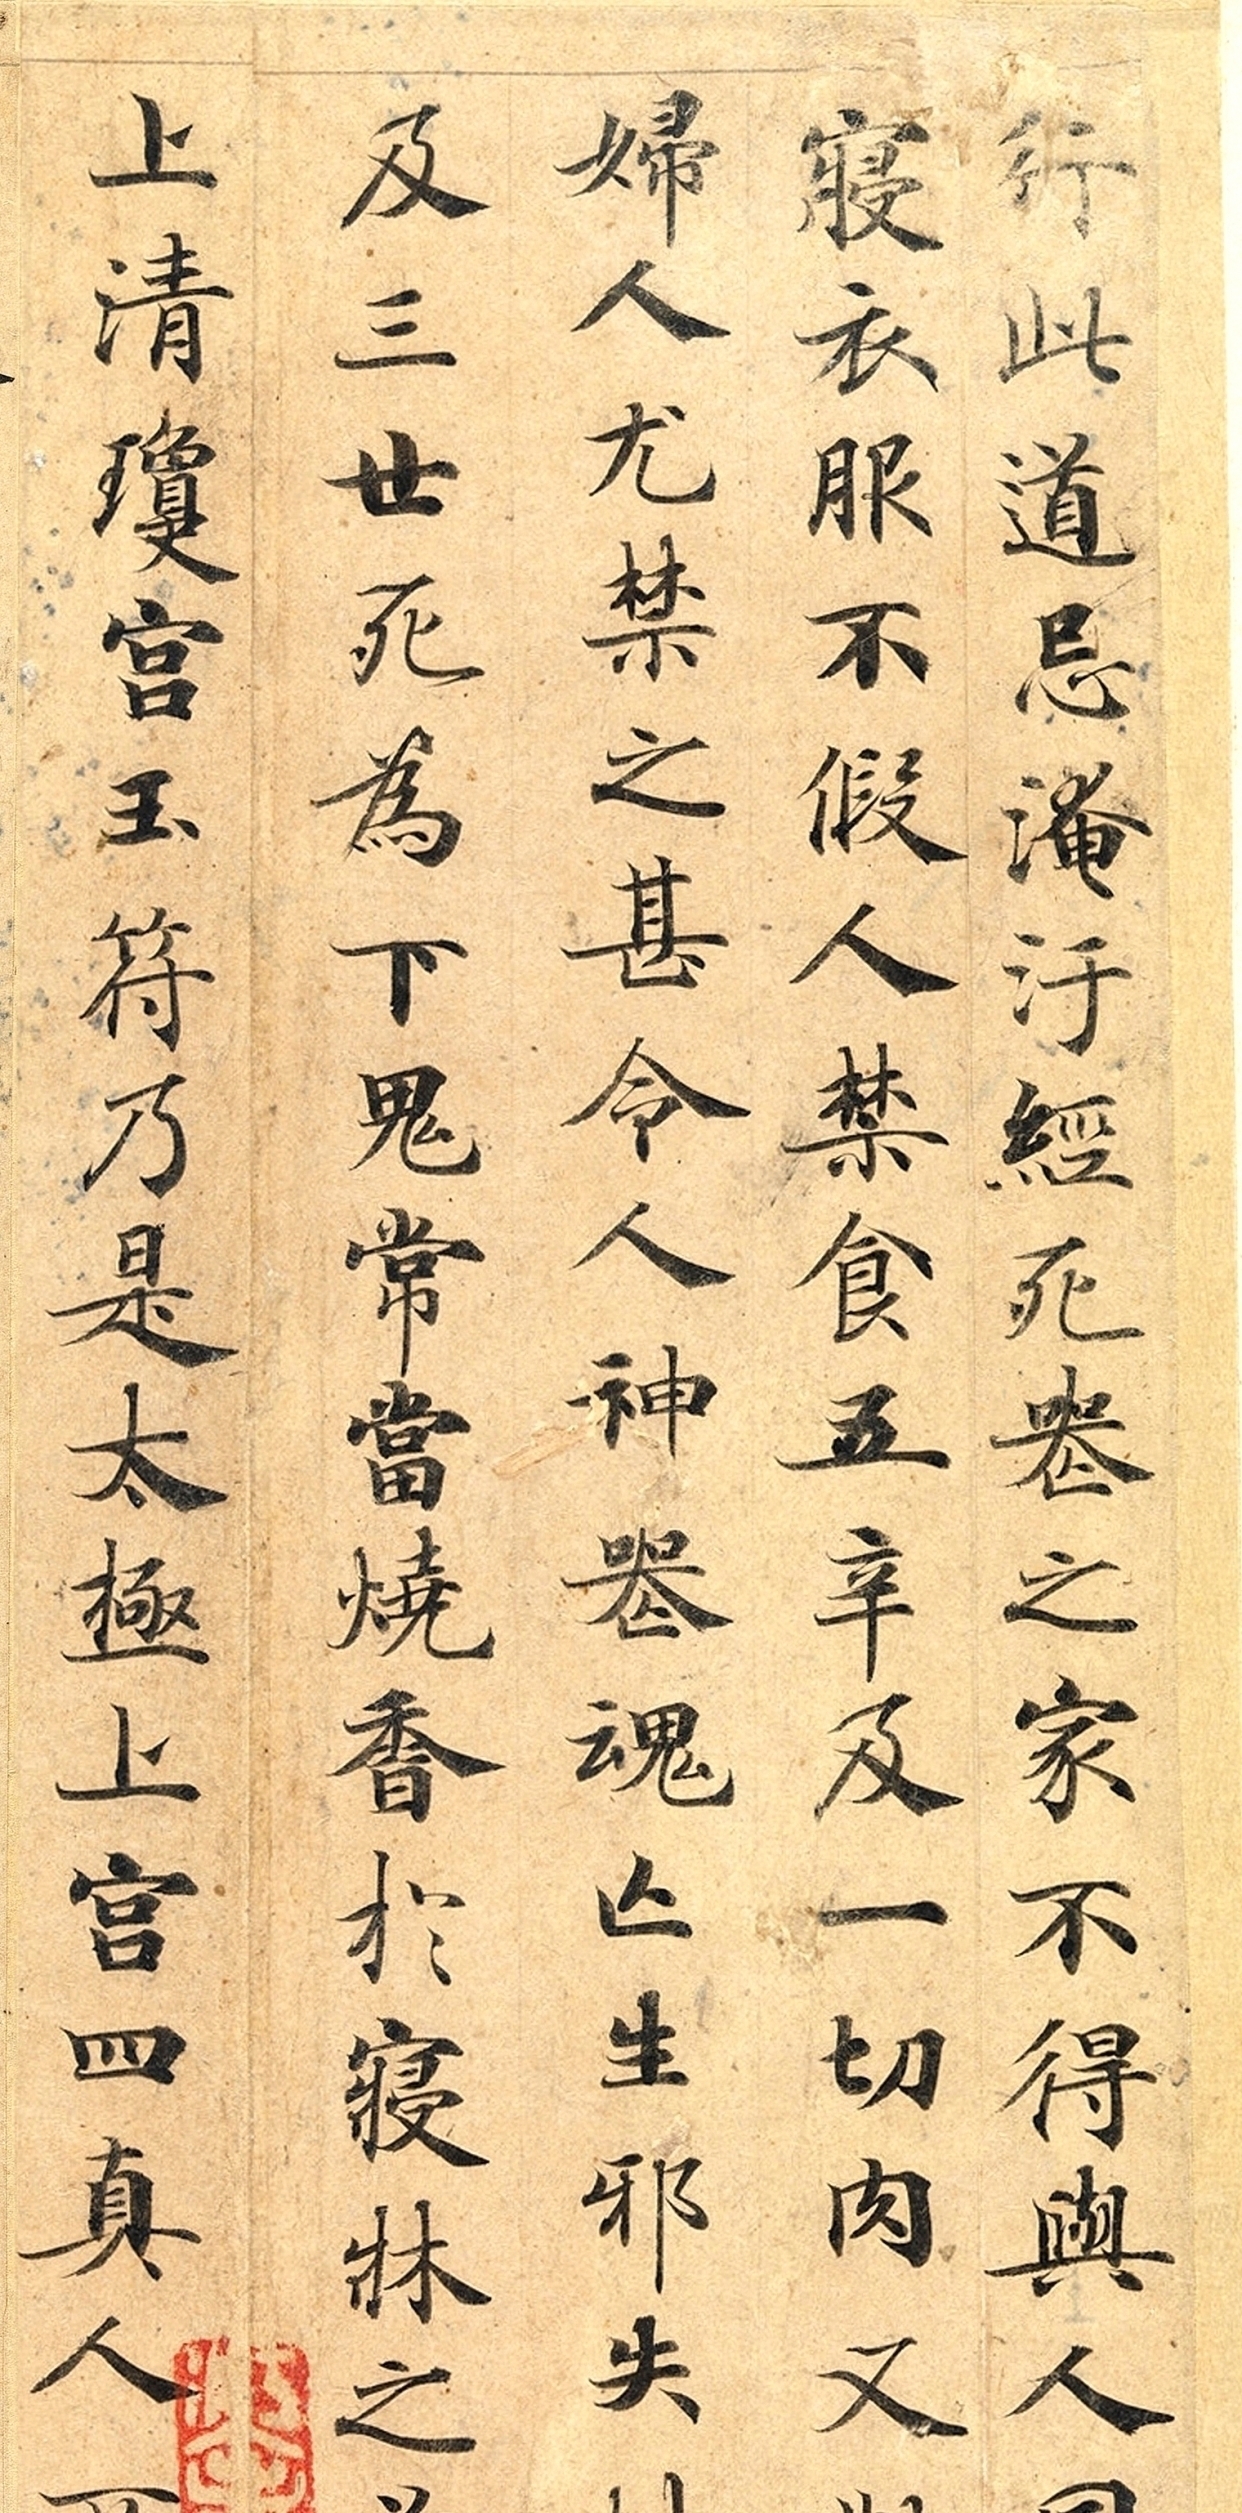 行此道忌淹汙經死喪之家不得與人
寢衣服不假人禁食五辛及一切肉又
婦人尤禁之甚令人神喪魂亡生邪失
及三世死為下鬼常當燒香於寢牀之
上清瓊宮玉符乃是太極上宮四真人